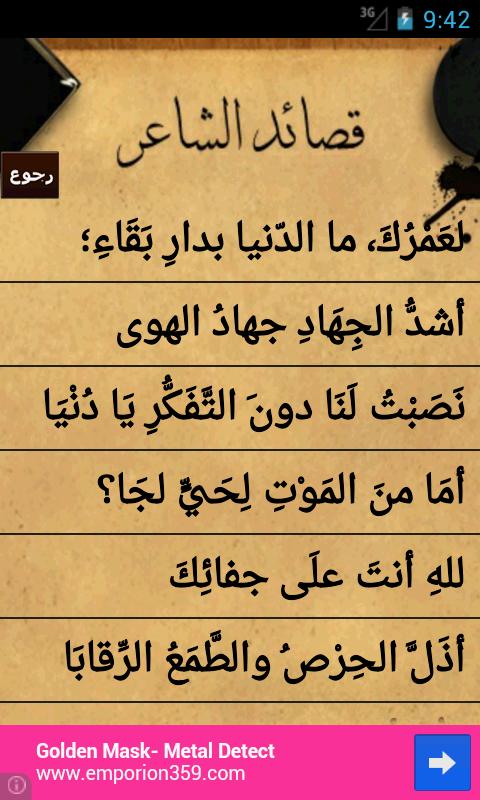 3G 9:42
قصائد الشاعر
رجوع
لعَمْرُكَ، ما الدّنيا بدارِ بَقَاءِ؛
أشدُّ الجِهَادِ جهادُ الهوى
نَصَبْتُ لَنَا دونَ التَّفَكُّرِ يَا دُنْيَا
أمَا منَ المَوْتِ لِحَيٍّ لجَا؟
للهِ أنتَ علَى جفائِكَ
أذَلَّ الحِرْصُ والطَّمَعُ الرِّقابَا
Golden Mask- Metal Detect
www.emporion359.com